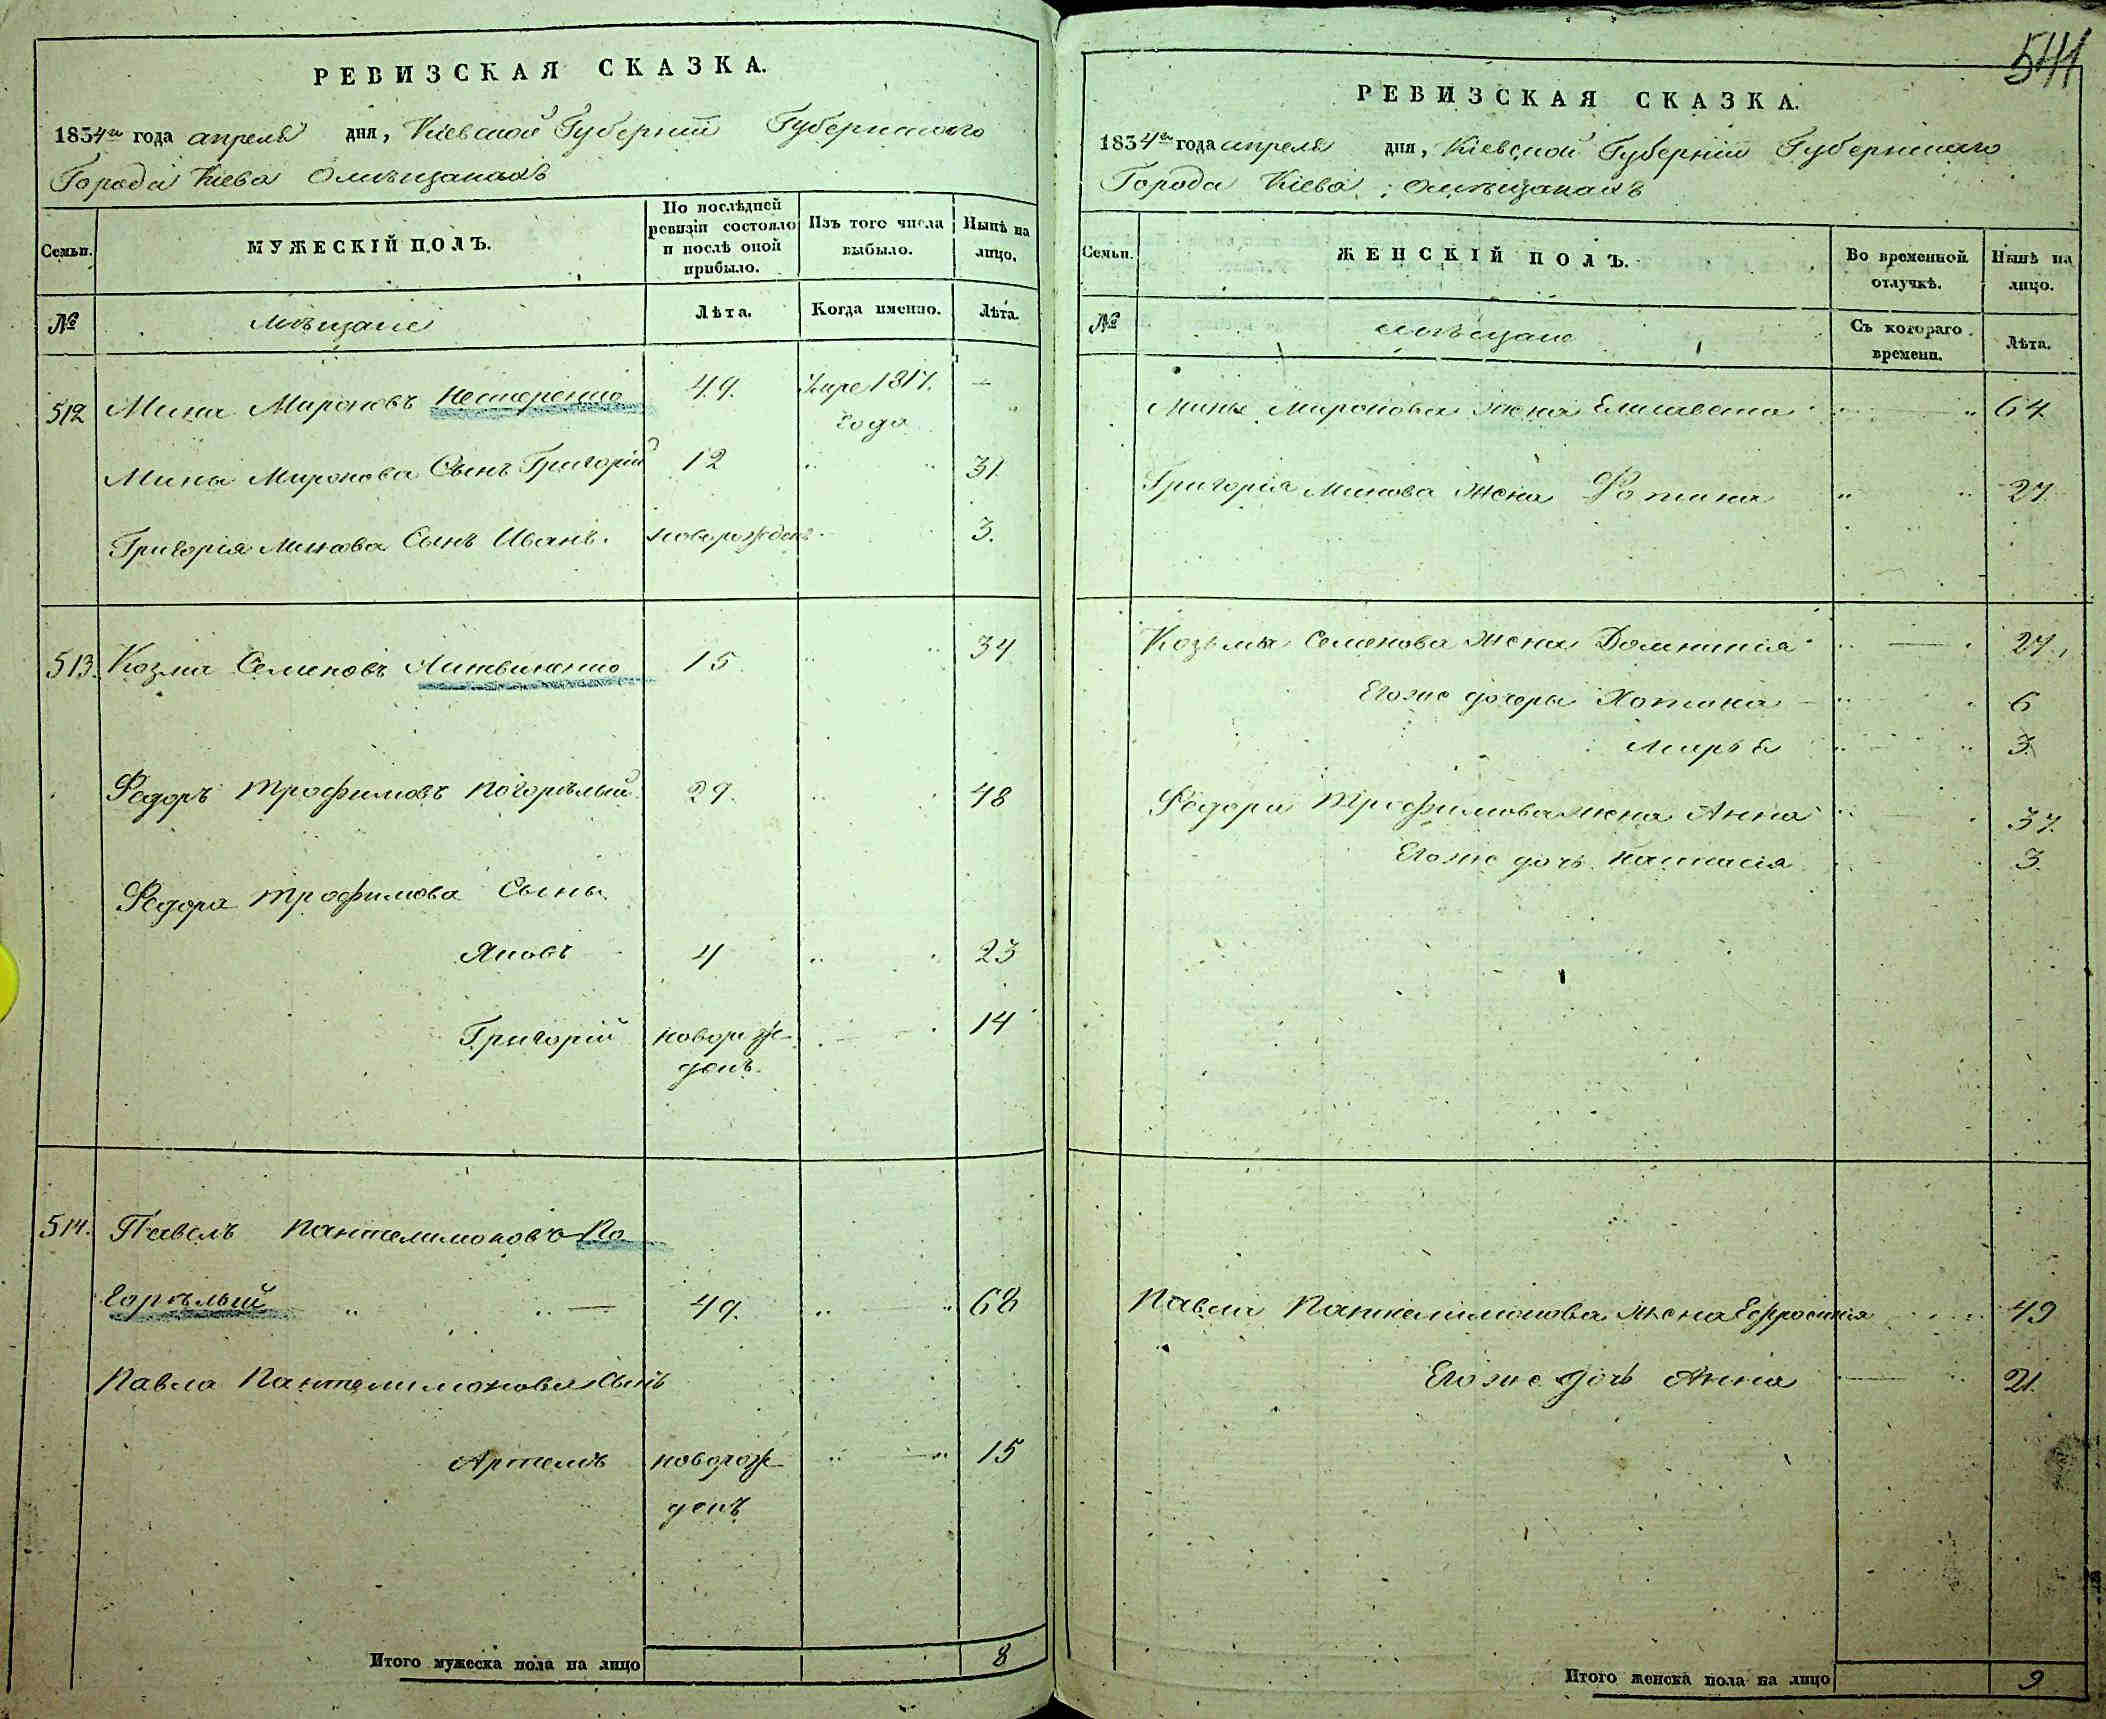 РЕВИЗСКАЯ СКАЗКА.
1834го года апреля дня, Кіевской Губерніи Губернского
Города Кіева Омѣщанахъ
Семьи. МУЖЕСКІЙ ПОЛЪ. По послѣдней ревизіи состояло и послѣ оной прибыло. Изъ того числа выбыло. Нынѣ на лицо.
№ Мѣщане Лѣта. Когда именно. Лѣта.
512 Мина Мироновъ Нестеренко 49. Умре 1817. —
года
Мины Миронова Сынъ Григорій 12 31.
Григорія Минова Сынъ Иванъ. новорожденъ 3.
513. Козма Семеновъ Литвиненко 15 34
Федоръ Трофимовъ Погорѣлый 29. 48
Федора Трофимова Сыны
Яковъ 4 23
Григорій новорож- 14
денъ.
514. Павелъ Пантелимоновъ По
горѣлый 49. 68
Павла Пантелимонова Сынъ
Артемъ новорож- 15
денъ
Итого мужеска пола на лицо 8
541
РЕВИЗСКАЯ СКАЗКА.
1834го года апреля дня, Кіевской Губерніи Губернского
Города Кіева Омѣщанахъ
Семьи. ЖЕНСКІЙ ПОЛЪ. Во временной отлучкѣ. Нынѣ на лицо.
№ Мѣщане Съ котораго времени. Лѣта.
Мины Миронова жена Елисавета 64
Григорія Минова жена Фотина 27.
Козьмы Семенова жена Домникія 27.
Егоже дочеры Хотина 6
Марья 3.
Федора Трофимова жена Анна 37.
Егоже дочь Настасія 3.
Павла Пантелимонова жена Ефросинія 49
Егоже дочь Анна 21.
Итого женска пола на лицо 9